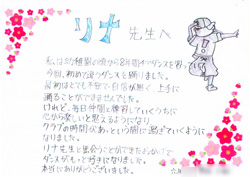 リナ先生へ
私は幼稚園の頃から8年間ダンスを習って
今回、初めて違うダンスを踊りました。
最初はとても不安で、自信が無く、上手に
踊ることができませんでした。
けれど、毎日仲間と練習していくうちに
心から楽しいと思えるようになり
クラブの時間があっという間に過ぎていくように
なりました。
リナ先生と出会うことができたおかげで
ダンスがもっと好きになりました。
本当にありがとうございました。